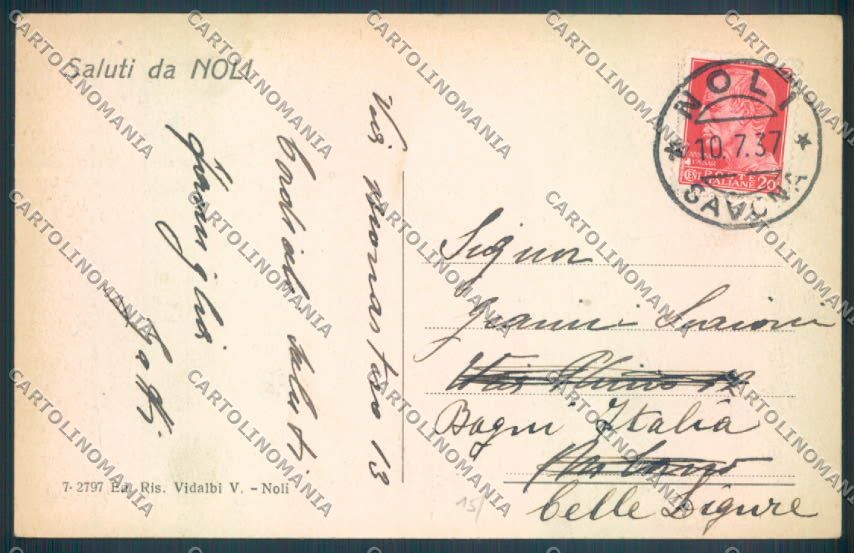 Saluti da NOLI
Via Monastero 13
Cordiali saluti
Famiglia
NOLI
10.7.37
SAVONA
POSTE
CENT. ITALIANE 20
Signor
Gianni
Via
Bagni Italia
Celle Ligure
7-2797 Ed. Ris. Vidalbi V. - Noli
15
CARTOLINOMANIA